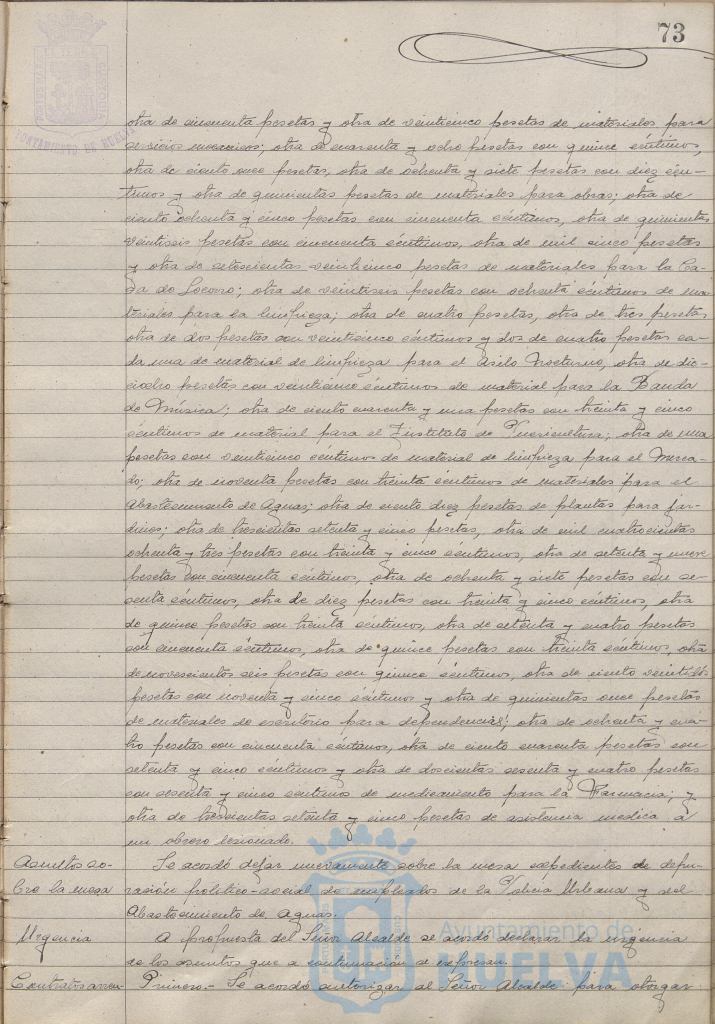 73
otra de cincuenta pesetas y otra de veinticinco pesetas de materiales para
servicios mecánicos; otra de cuarenta y ocho pesetas con quince céntimos,
otra de ciento once pesetas, otra de ochenta y siete pesetas con diez cén-
timos y otra de quinientas pesetas de materiales para obras; otra de
ciento ochenta y cinco pesetas con cincuenta céntimos, otra de quinientas
veintiseis pesetas con cincuenta céntimos, otra de mil cinco pesetas
y otra de setecientas veinticinco pesetas de materiales para la Ca-
sa de Socorro; otra de veintiseis pesetas con ochenta céntimos de ma-
teriales para la limpieza; otra de cuatro pesetas, otra de tres pesetas
otra de dos pesetas con veinticinco céntimos y dos de cuatro pesetas ca-
da una de material de limpieza para el Asilo Nocturno, otra de die-
ciocho pesetas con veinticinco céntimos de material para la Banda
de Música; otra de ciento cuarenta y una pesetas con treinta y cinco
céntimos de material para el Instituto de Puericultura; otra de una
pesetas con veinticinco céntimos de material de limpieza para el Merca-
do; otra de noventa pesetas con treinta céntimos de materiales para el
Abastecimiento de Aguas; otra de ciento diez pesetas de plantas para jar-
dines; otra de trescientas setenta y cinco pesetas, otra de mil cuatrocientas
ochenta y tres pesetas con treinta y cinco céntimos, otra de setenta y nueve
pesetas con cincuenta céntimos, otra de ochenta y siete pesetas con se-
senta céntimos, otra de diez pesetas con treinta y cinco céntimos, otra
de quince pesetas con treinta céntimos, otra de setenta y cuatro pesetas
con cincuenta céntimos, otra de quince pesetas con treinta céntimos, otra
de novescientos seis pesetas con quince céntimos, otra de ciento veintidós
pesetas con noventa y cinco céntimos y otra de quinientas once pesetas
de materiales de escritorio para dependencias; otra de ochenta y cua-
tro pesetas con cincuenta céntimos, otra de ciento cuarenta pesetas con
setenta y cinco céntimos y otra de doscientas sesenta y cuatro pesetas
con sesenta y cinco céntimos de medicamento para la Farmacia; y
otra de trescientas setenta y cinco pesetas de asistencia medica a
un obrero lesionado.
Asuntos so- Se acordó dejar nuevamente sobre la mesa expedientes de depu-
bre la mesa ración político-social de empleados de la Policia Urbana y del
Abastecimiento de Aguas.
Urgencia A propuesta del Señor Alcalde se acordó declarar la urgencia
de los asuntos que a continuación se expresan.
Contratos arren- Primero.- Se acordó autorizar al Señor Alcalde para otorgar
AYUNTAMIENTO DE HUELVA
Ayuntamiento de
HUELVA